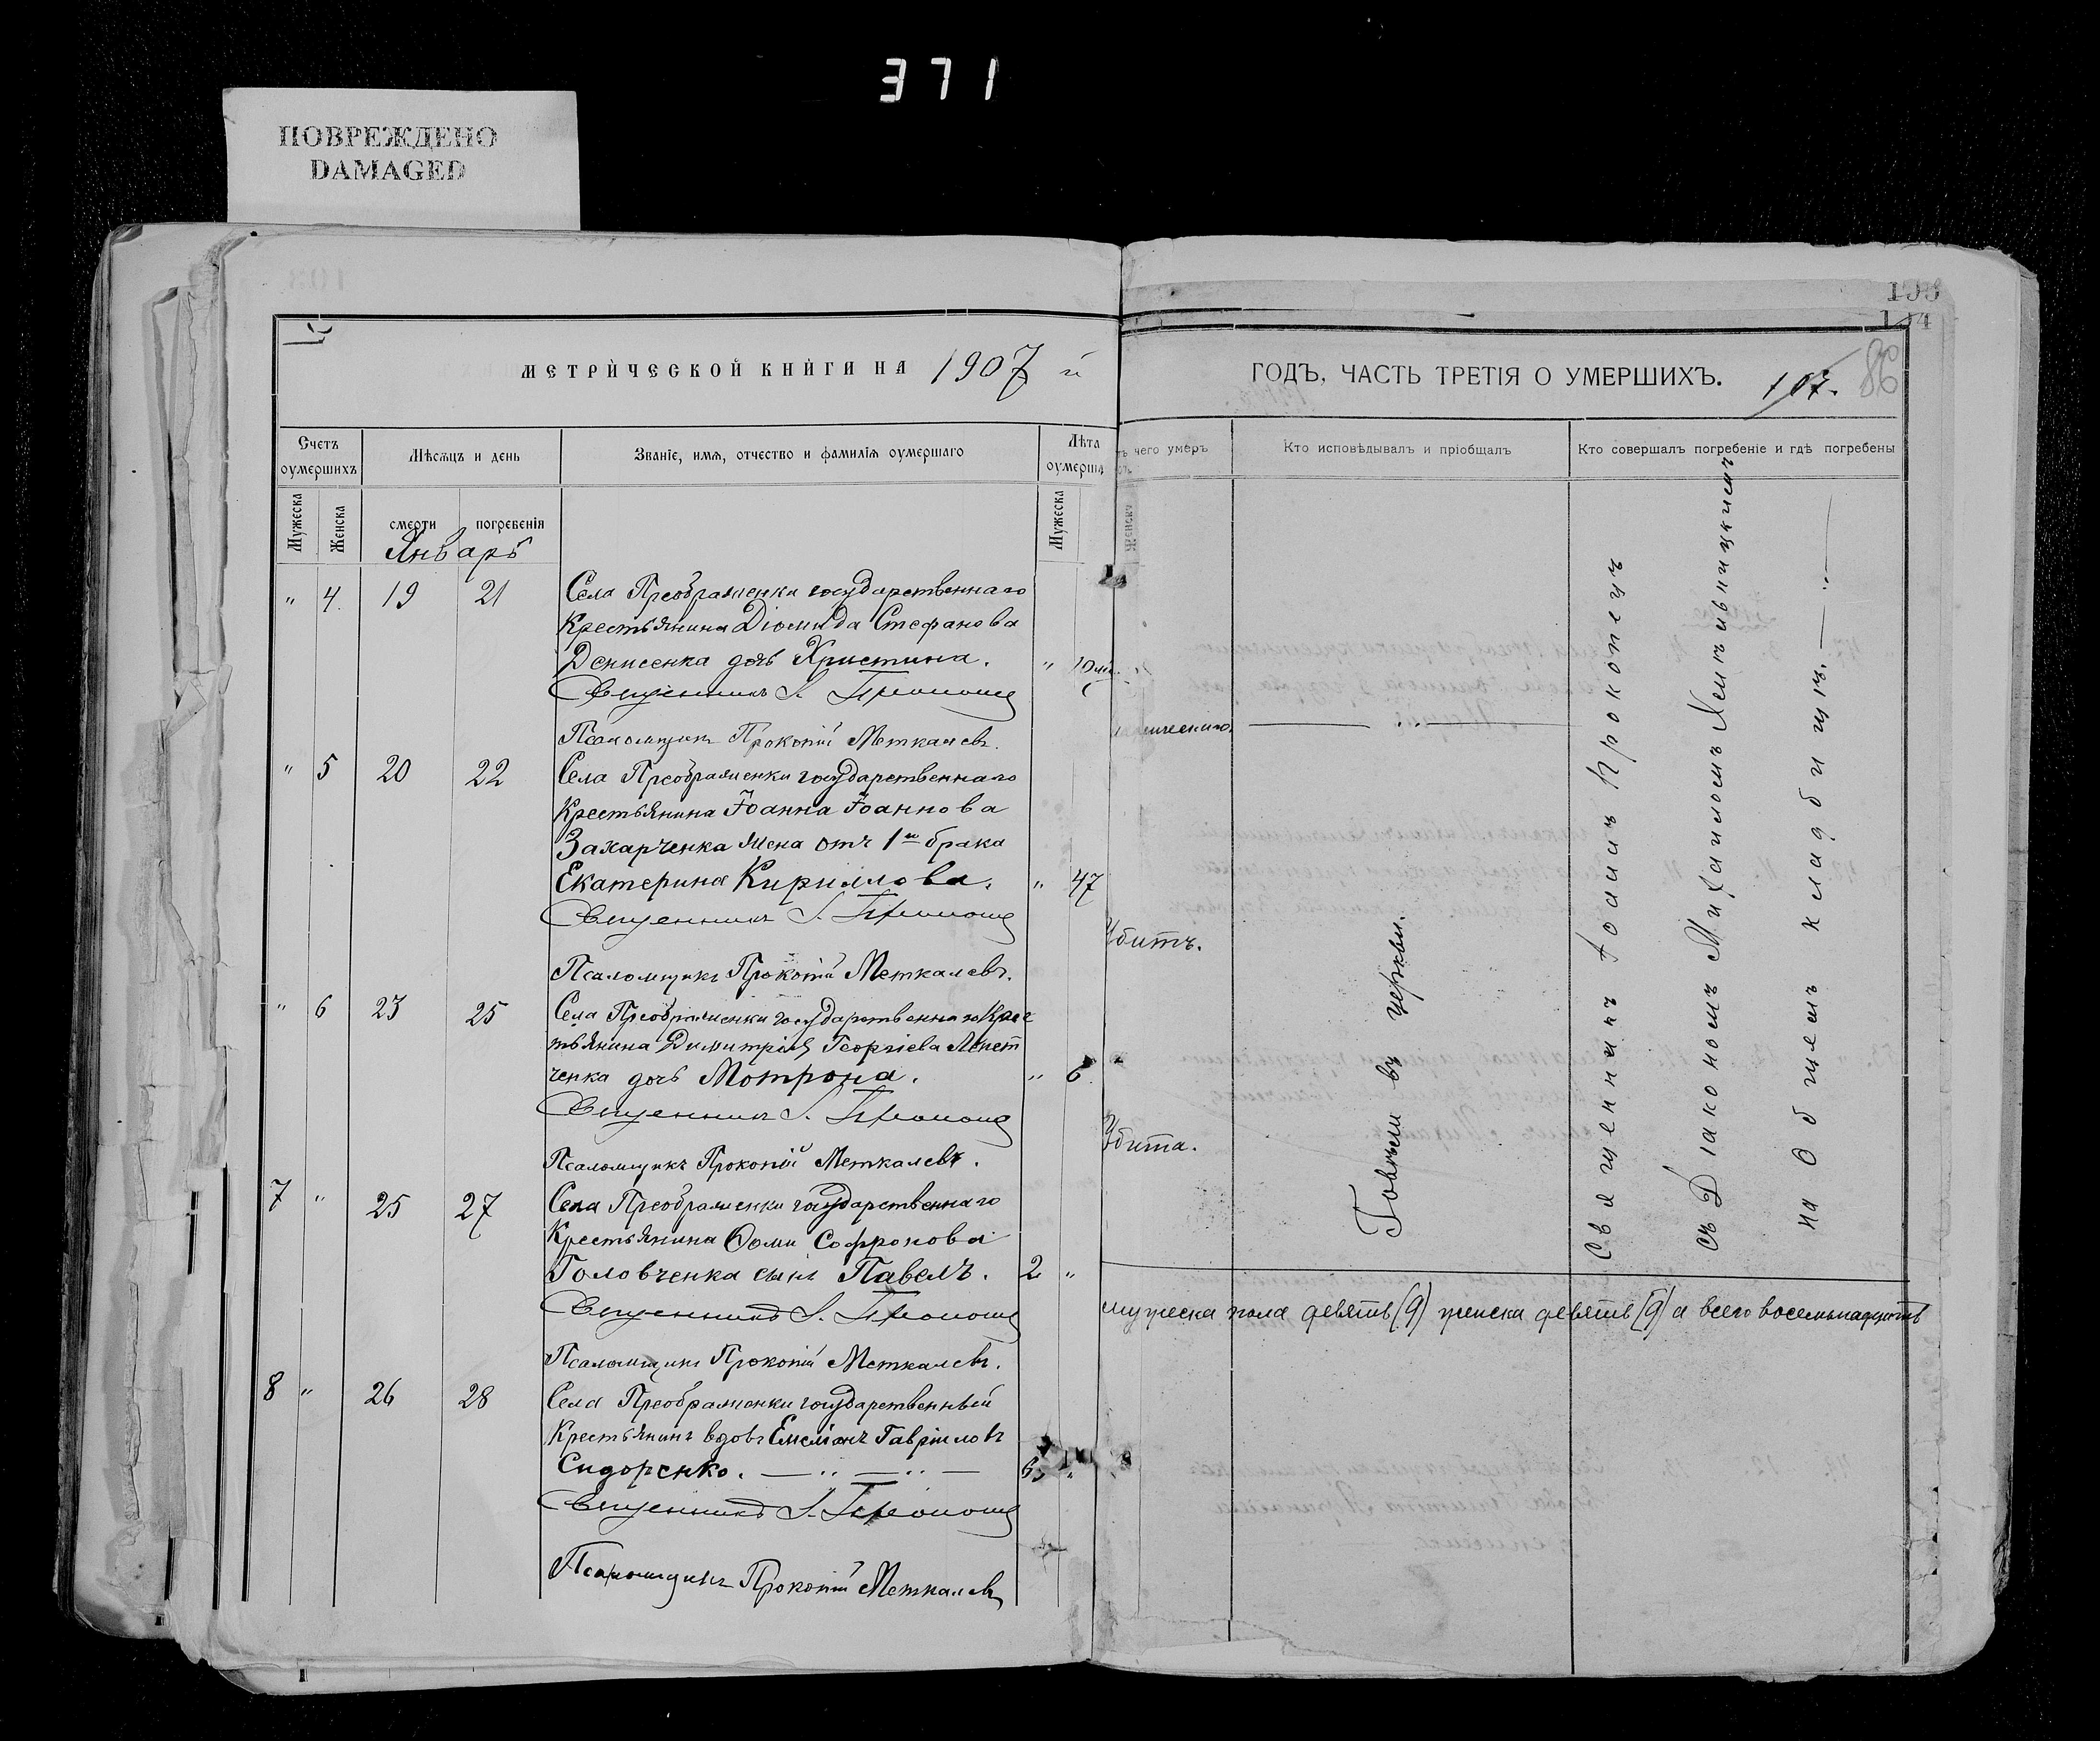 371
ПОВРЕЖДЕНО
DAMAGED
МЕТРИЧЕСКОЙ КНИГИ НА 1907 й
Счетъ оумершихъ
Мѣсяцъ и день
Званіе, имя, отчество и фамилія оумершаго
Лѣта оумерша
Мужеска
Женска
смерти
погребенія
Мужеска
Январь
" 4 19 21 Села Преображенки государственнаго
Крестьянина Діомида Стефанова
Денисенка дочь Христина. "
Священникъ І. Прокопецъ
Псаломщикъ Прокопій Меткалевъ.
" 5 20 22 Села Преображенки государственнаго
Крестьянина Іоанна Іоаннова
Захарченка жена отъ 1го брака
Екатерина Кириллова. " 47
Священникъ І. Прокопецъ
Псаломщикъ Прокопій Меткалевъ.
" 6 23 25 Села Преображенки государственнаго Крес
тьянина Димитрія Георгіева
ченка дочь Мотрона. " 6
Священникъ І. Прокопецъ
Псаломщикъ Прокопій Меткалевъ.
7 " 25 27 Села Преображенки государственнаго
Крестьянина Ѳомы Софронова
Головченка сынъ Павелъ. 2 "
Священникъ І. Прокопецъ
Псаломщикъ Прокопій Меткалевъ.
8 " 26 28 Села Преображенки государственный
Крестьянинъ вдовъ Емеліанъ Гавріиловъ
Сидоренко. "
Священникъ І. Прокопецъ
Псаломщикъ Прокопій Меткалевъ
ГОДЪ, ЧАСТЬ ТРЕТІЯ О УМЕРШИХЪ. 107. 86
чего умеръ
Кто исповѣдывалъ и пріобщалъ
Кто совершалъ погребеніе и гдѣ погребены
Женска
Убитъ.
Убита.
Говѣли въ церкви.
Священникъ Іоаннъ Прокопецъ
съ Діакономъ Михаиломъ Хмѣльницкимъ
на Общемъ кладбищѣ.
мужеска пола девять (9) женска девять (9) а всего восемьнадцать